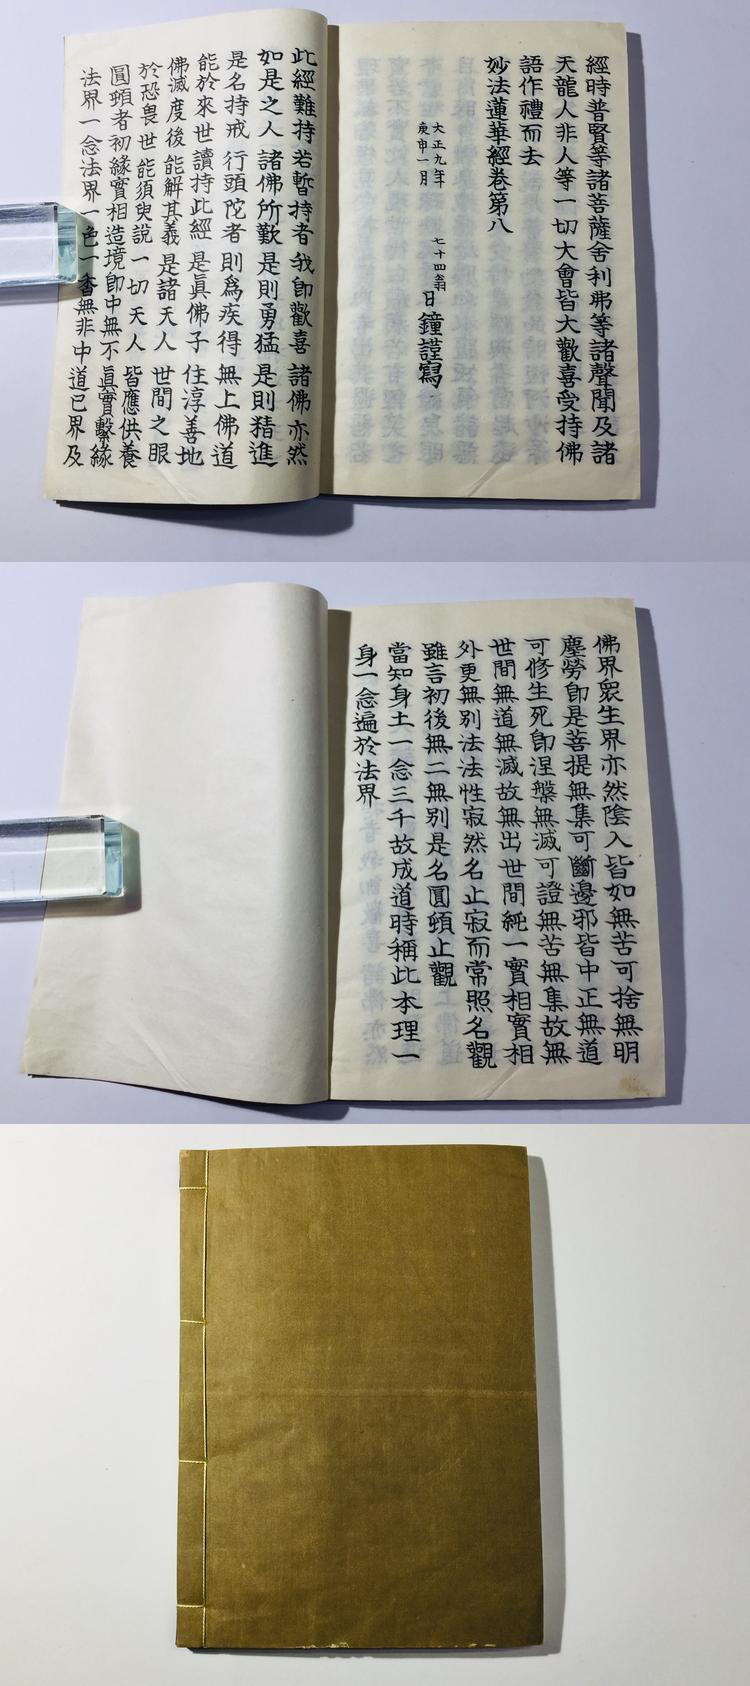 經時普賢等諸菩薩舍利弗等諸聲聞及諸
天龍人非人等一切大會皆大歡喜受持佛
語作禮而去
妙法蓮華經卷第八
大正九年
庚申一月
七十四翁
日鐘謹寫
此經難持 若暫持者 我即歡喜 諸佛亦然
如是之人 諸佛所歎 是則勇猛 是則精進
是名持戒 行頭陀者 則為疾得 無上佛道
能於來世 讀持此經 是眞佛子 住淳善地
佛滅度後 能解其義 是諸天人 世間之眼
於恐畏世 能須臾說 一切天人 皆應供養
圓頓者初緣實相造境即中無不眞實繫緣
法界一念法界一色一香無非中道已界及
佛界眾生界亦然陰入皆如無苦可捨無明
塵勞即是菩提無集可斷邊邪皆中正無道
可修生死即涅槃無滅可證無苦無集故無
世間無道無滅故無出世間純一實相實相
外更無別法法性寂然名止寂而常照名觀
雖言初後無二無別是名圓頓止觀
當知身土一念三千故成道時稱此本理一
身一念遍於法界